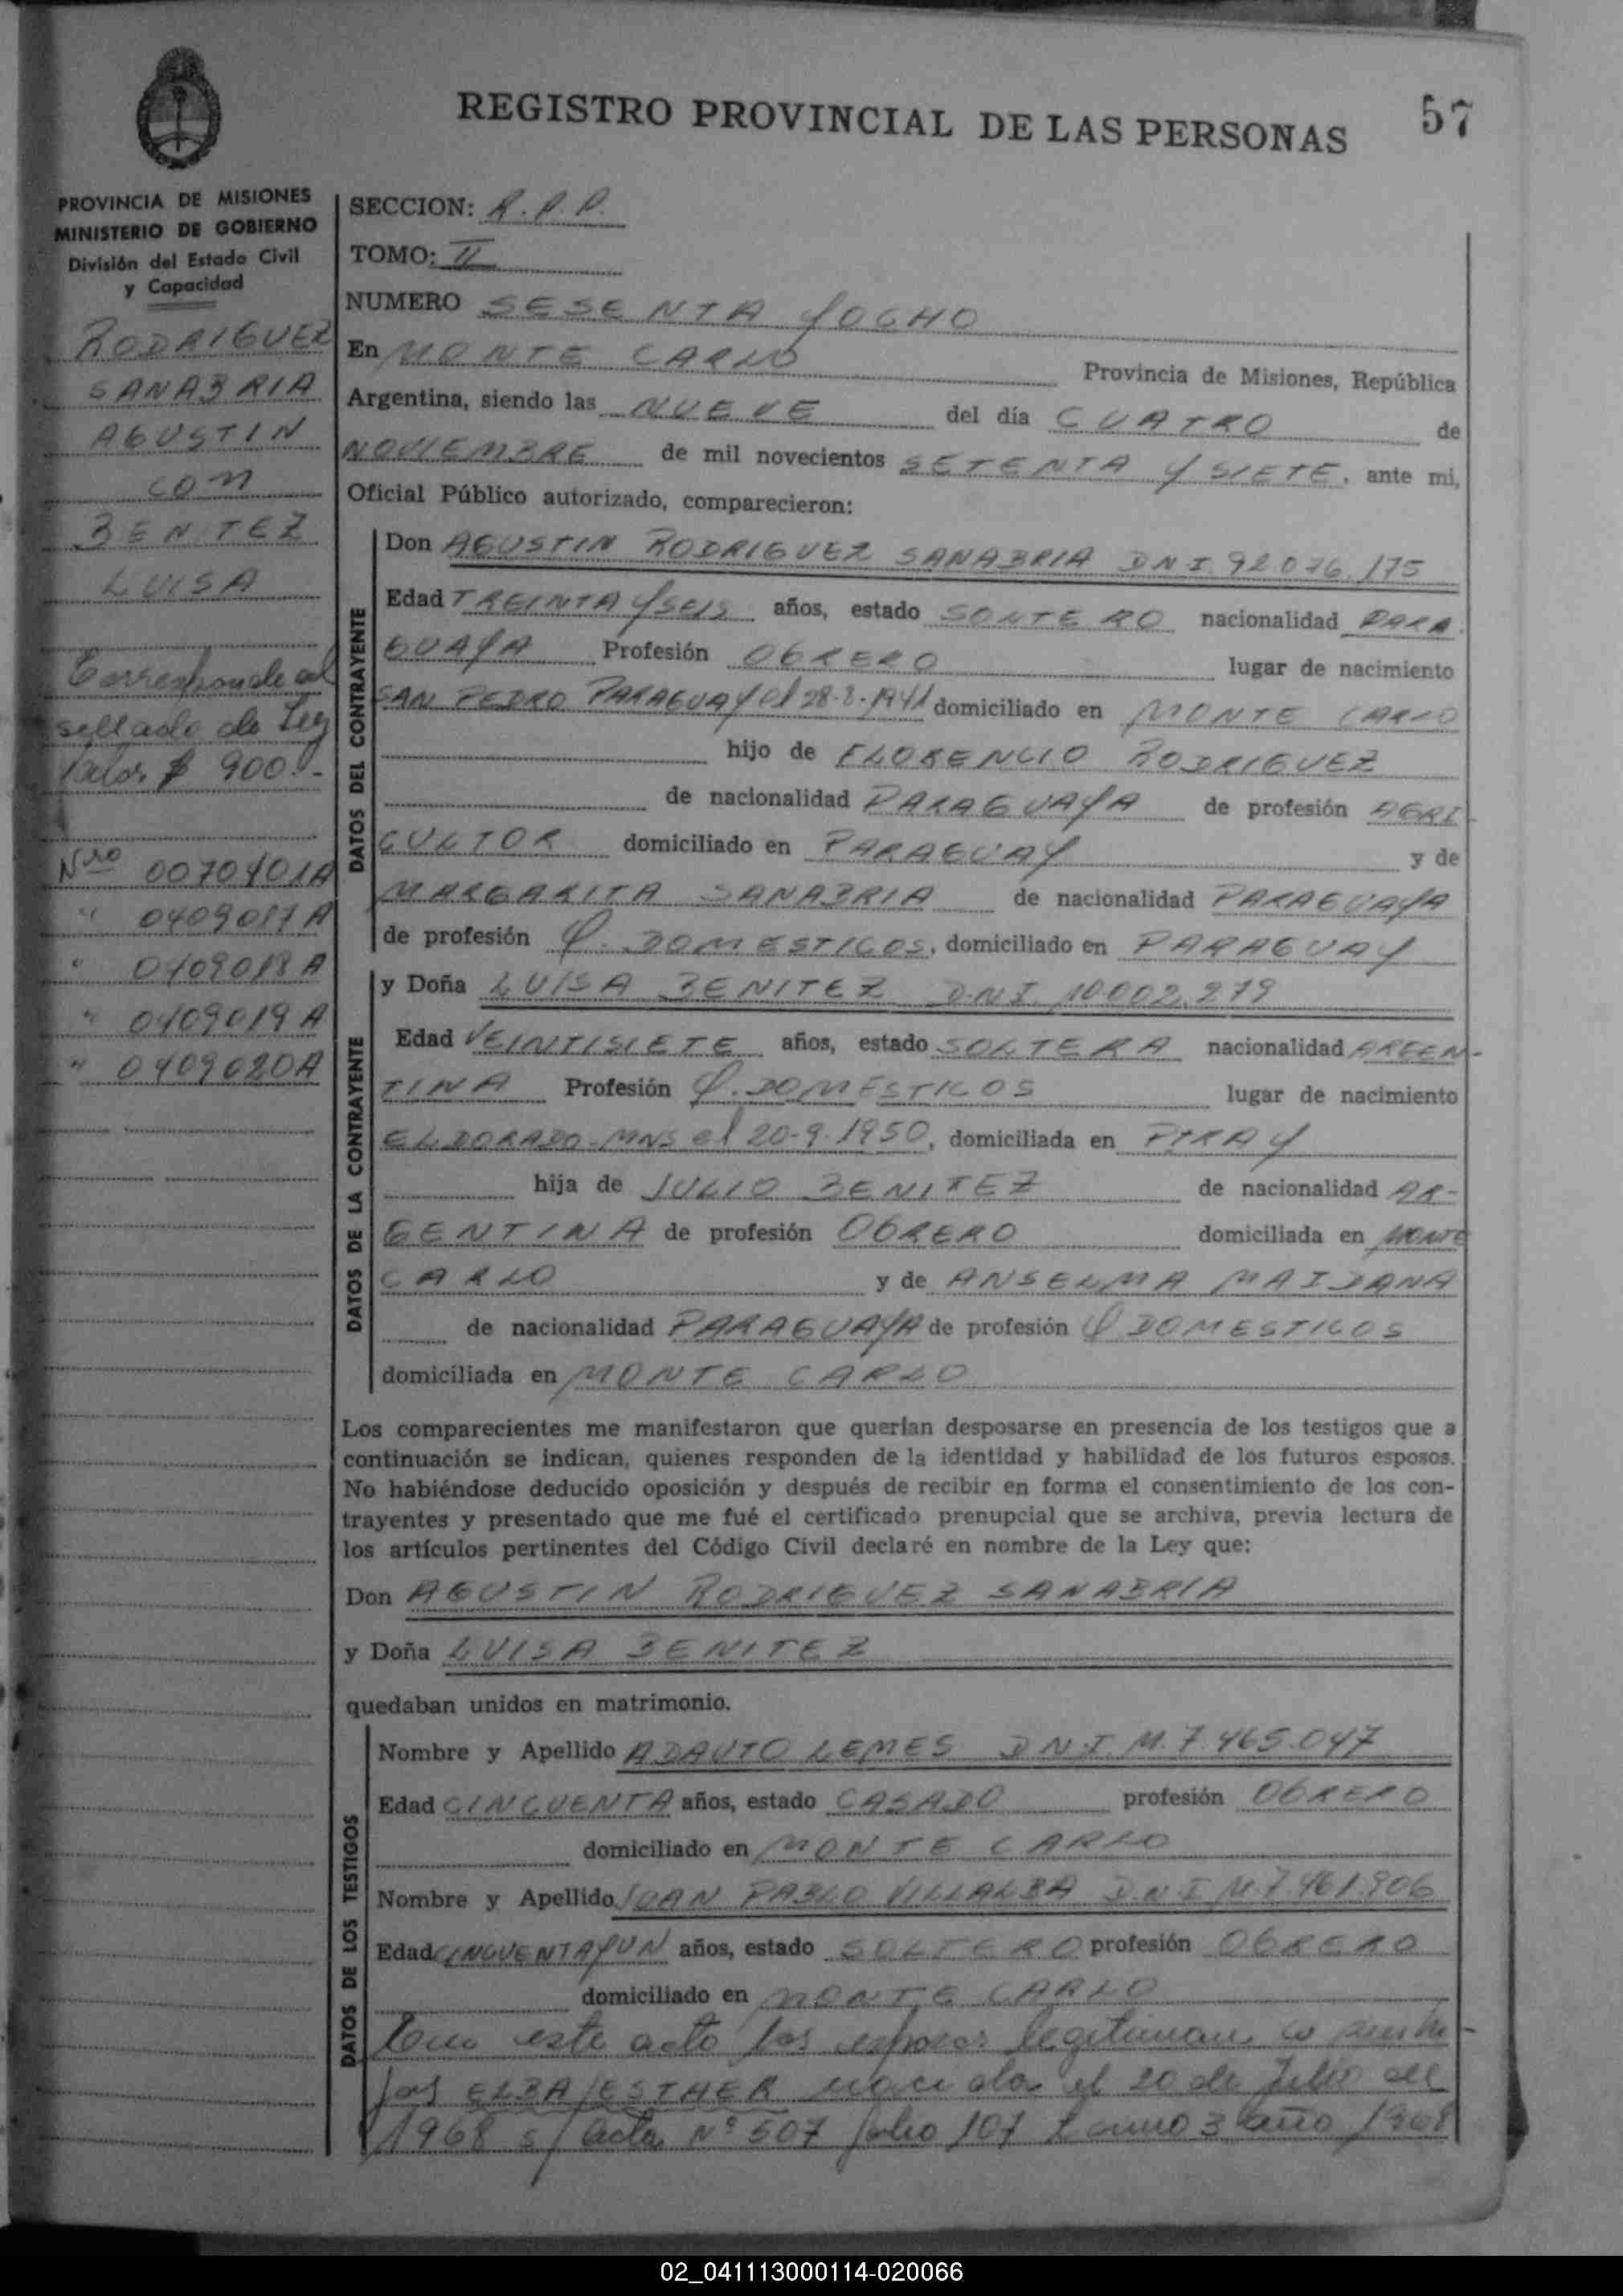 REGISTRO PROVINCIAL DE LAS PERSONAS
57
PROVINCIA DE MISIONES
MINISTERIO DE GOBIERNO
División del Estado Civil
y Capacidad
RODRIGUEZ
SANABRIA
AGUSTIN
con
BENITEZ
LUISA
Corresponde al
sellado de Ley
Valor $ 900.-
Nro 0070401A
" 0409017A
" 0409018A
" 0409019A
" 0409020A
SECCION: R.P.P.
TOMO: II
NUMERO SESENTA Y OCHO
En MONTE CARLO Provincia de Misiones, República
Argentina, siendo las NUEVE del día CUATRO de
NOVIEMBRE de mil novecientos SETENTA Y SIETE, ante mi,
Oficial Público autorizado, comparecieron:
DATOS DEL CONTRAYENTE
Don AGUSTIN RODRIGUEZ SANABRIA DNI 92.076.175
Edad TREINTA Y SEIS años, estado SOLTERO nacionalidad PARA
GUAYA Profesión OBRERO lugar de nacimiento
SAN PEDRO PARAGUAY el 28-8-1941 domiciliado en MONTE CARLO
hijo de FLORENCIO RODRIGUEZ
de nacionalidad PARAGUAYA de profesión AGRI
CULTOR domiciliado en PARAGUAY y de
MARGARITA SANABRIA de nacionalidad PARAGUAYA
de profesión Q. DOMESTICOS, domiciliado en PARAGUAY
DATOS DE LA CONTRAYENTE
y Doña LUISA BENITEZ D.N.I. 10.002.279
Edad VEINTISIETE años, estado SOLTERA nacionalidad ARGEN-
TINA Profesión Q. DOMESTICOS lugar de nacimiento
ELDORADO-MNS el 20-9-1950, domiciliada en PIRAY
hija de JULIO BENITEZ de nacionalidad AR-
GENTINA de profesión OBRERO domiciliada en MONTE
CARLO y de ANSELMA MAIDANA
de nacionalidad PARAGUAYA de profesión Q DOMESTICOS
domiciliada en MONTE CARLO
Los comparecientes me manifestaron que querían desposarse en presencia de los testigos que a
continuación se indican, quienes responden de la identidad y habilidad de los futuros esposos.
No habiéndose deducido oposición y después de recibir en forma el consentimiento de los con-
trayentes y presentado que me fué el certificado prenupcial que se archiva, previa lectura de
los artículos pertinentes del Código Civil declaré en nombre de la Ley que:
Don AGUSTIN RODRIGUEZ SANABRIA
y Doña LUISA BENITEZ
quedaban unidos en matrimonio.
DATOS DE LOS TESTIGOS
Nombre y Apellido ADAUTO LEMES D.N.I. M. 7.465.047
Edad CINCUENTA años, estado CASADO profesión OBRERO
domiciliado en MONTE CARLO
Nombre y Apellido JUAN PABLO VILLALBA D.N.I M.7.461.906
Edad CINCUENTA Y UN años, estado SOLTERO profesión OBRERO
domiciliado en MONTE CARLO
este acto los esposos legitiman
ELBA ESTHER nacida el 20 de Julio de
1968 s/ acta Nº 507 folio 107 tomo 3 año 1968
02_041113000114-020066